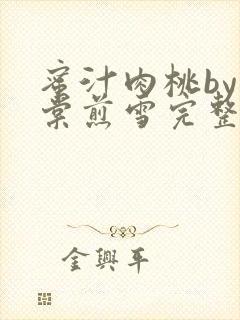 蜜汁肉桃by
棠煎雪完整
金興平